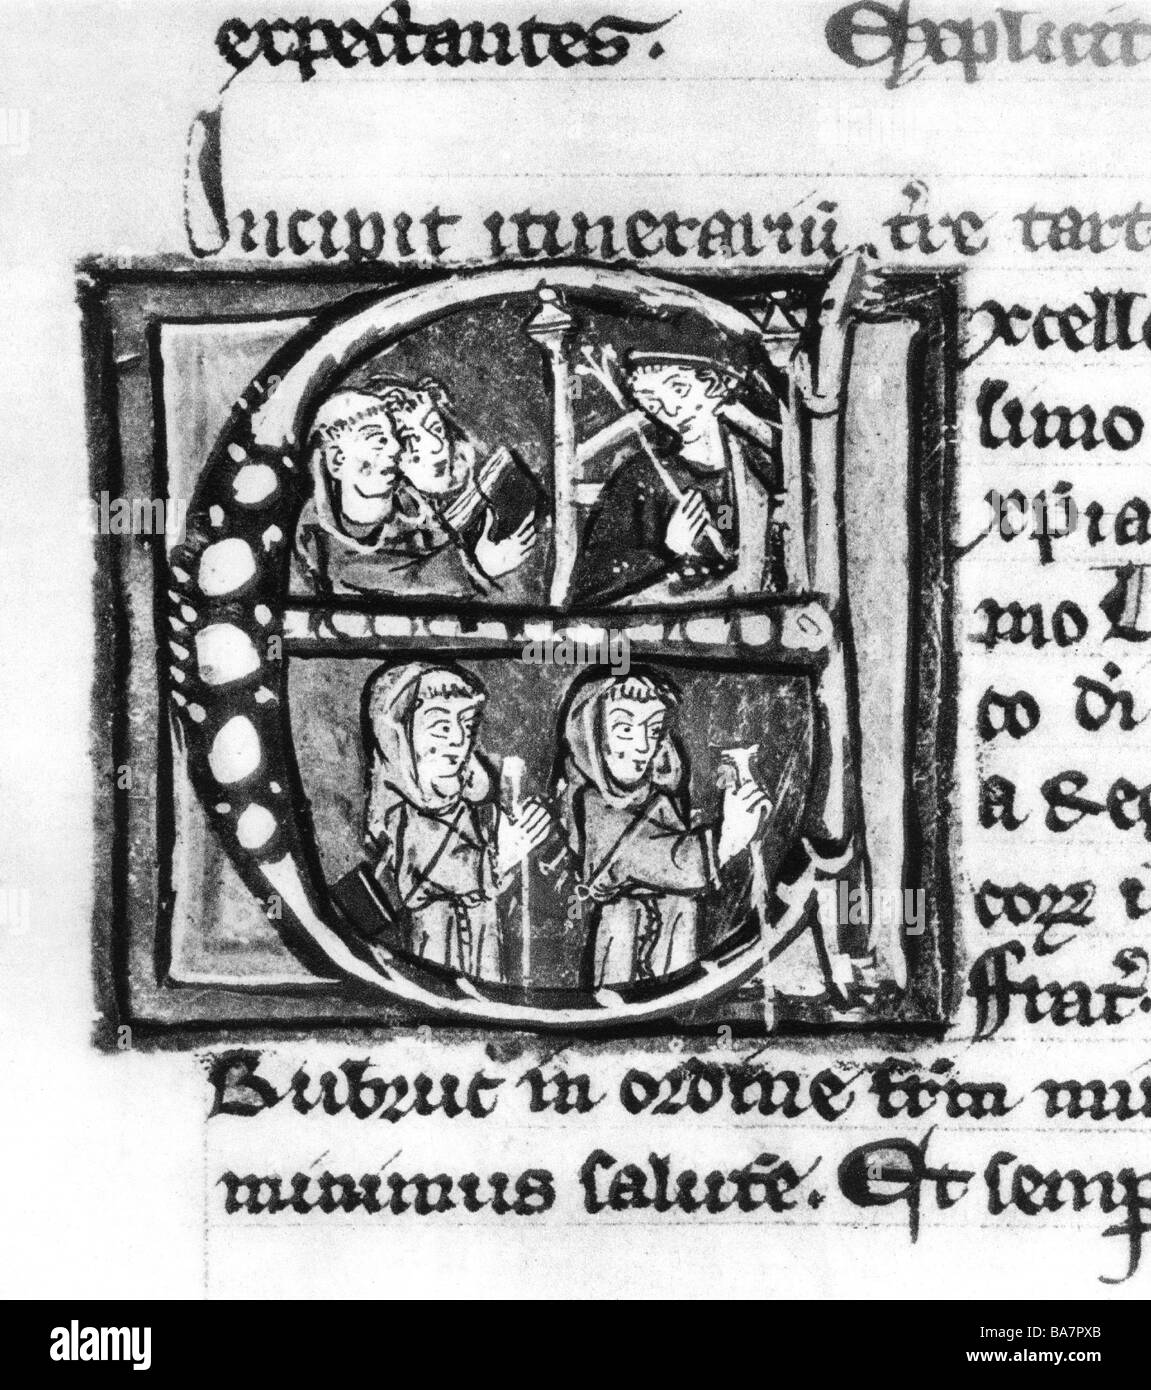 expectantes. Explicit
Incipit itinerariū t̄re tart
Excelle
limo
xp̄ia
mo L
co di
a Reg
corꝝ i
ffrat̄.
Rubruc in ordine fr̄m mi
minimus salutē. Et semp
alamy
Image ID: BA7PXB
www.alamy.com